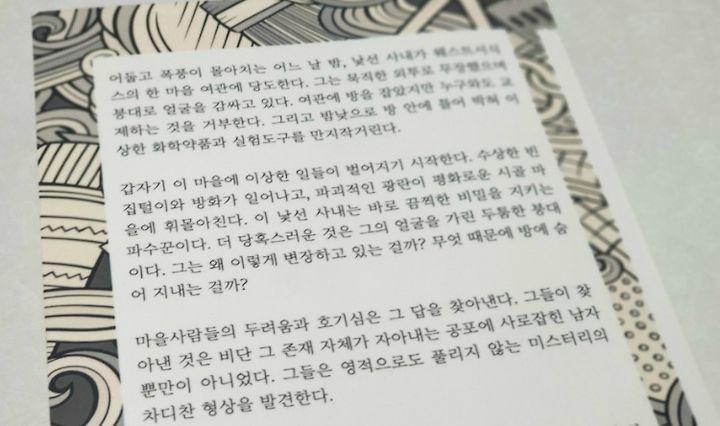 어둡고 폭풍이 몰아치는 어느 날 밤, 낯선 사내가 웨스트서식
스의 한 마을 여관에 당도한다. 그는 묵직한 외투로 무장했으며
붕대로 얼굴을 감싸고 있다. 여관에 방을 잡았지만 누구와도 교
제하는 것을 거부한다. 그리고 밤낮으로 방 안에 틀어 박혀 이
상한 화학약품과 실험도구를 만지작거린다.
갑자기 이 마을에 이상한 일들이 벌어지기 시작한다. 수상한 빈
집털이와 방화가 일어나고, 파괴적인 광란이 평화로운 시골 마
을에 휘몰아친다. 이 낯선 사내는 바로 끔찍한 비밀을 지키는
파수꾼이다. 더 당혹스러운 것은 그의 얼굴을 가린 두툼한 붕대
이다. 그는 왜 이렇게 변장하고 있는 걸까? 무엇 때문에 방에 숨
어 지내는 걸까?
마을사람들의 두려움과 호기심은 그 답을 찾아낸다. 그들이 찾
아낸 것은 비단 그 존재 자체가 자아내는 공포에 사로잡힌 남자
뿐만이 아니었다. 그들은 영적으로도 풀리지 않는 미스터리의
차디찬 형상을 발견한다.